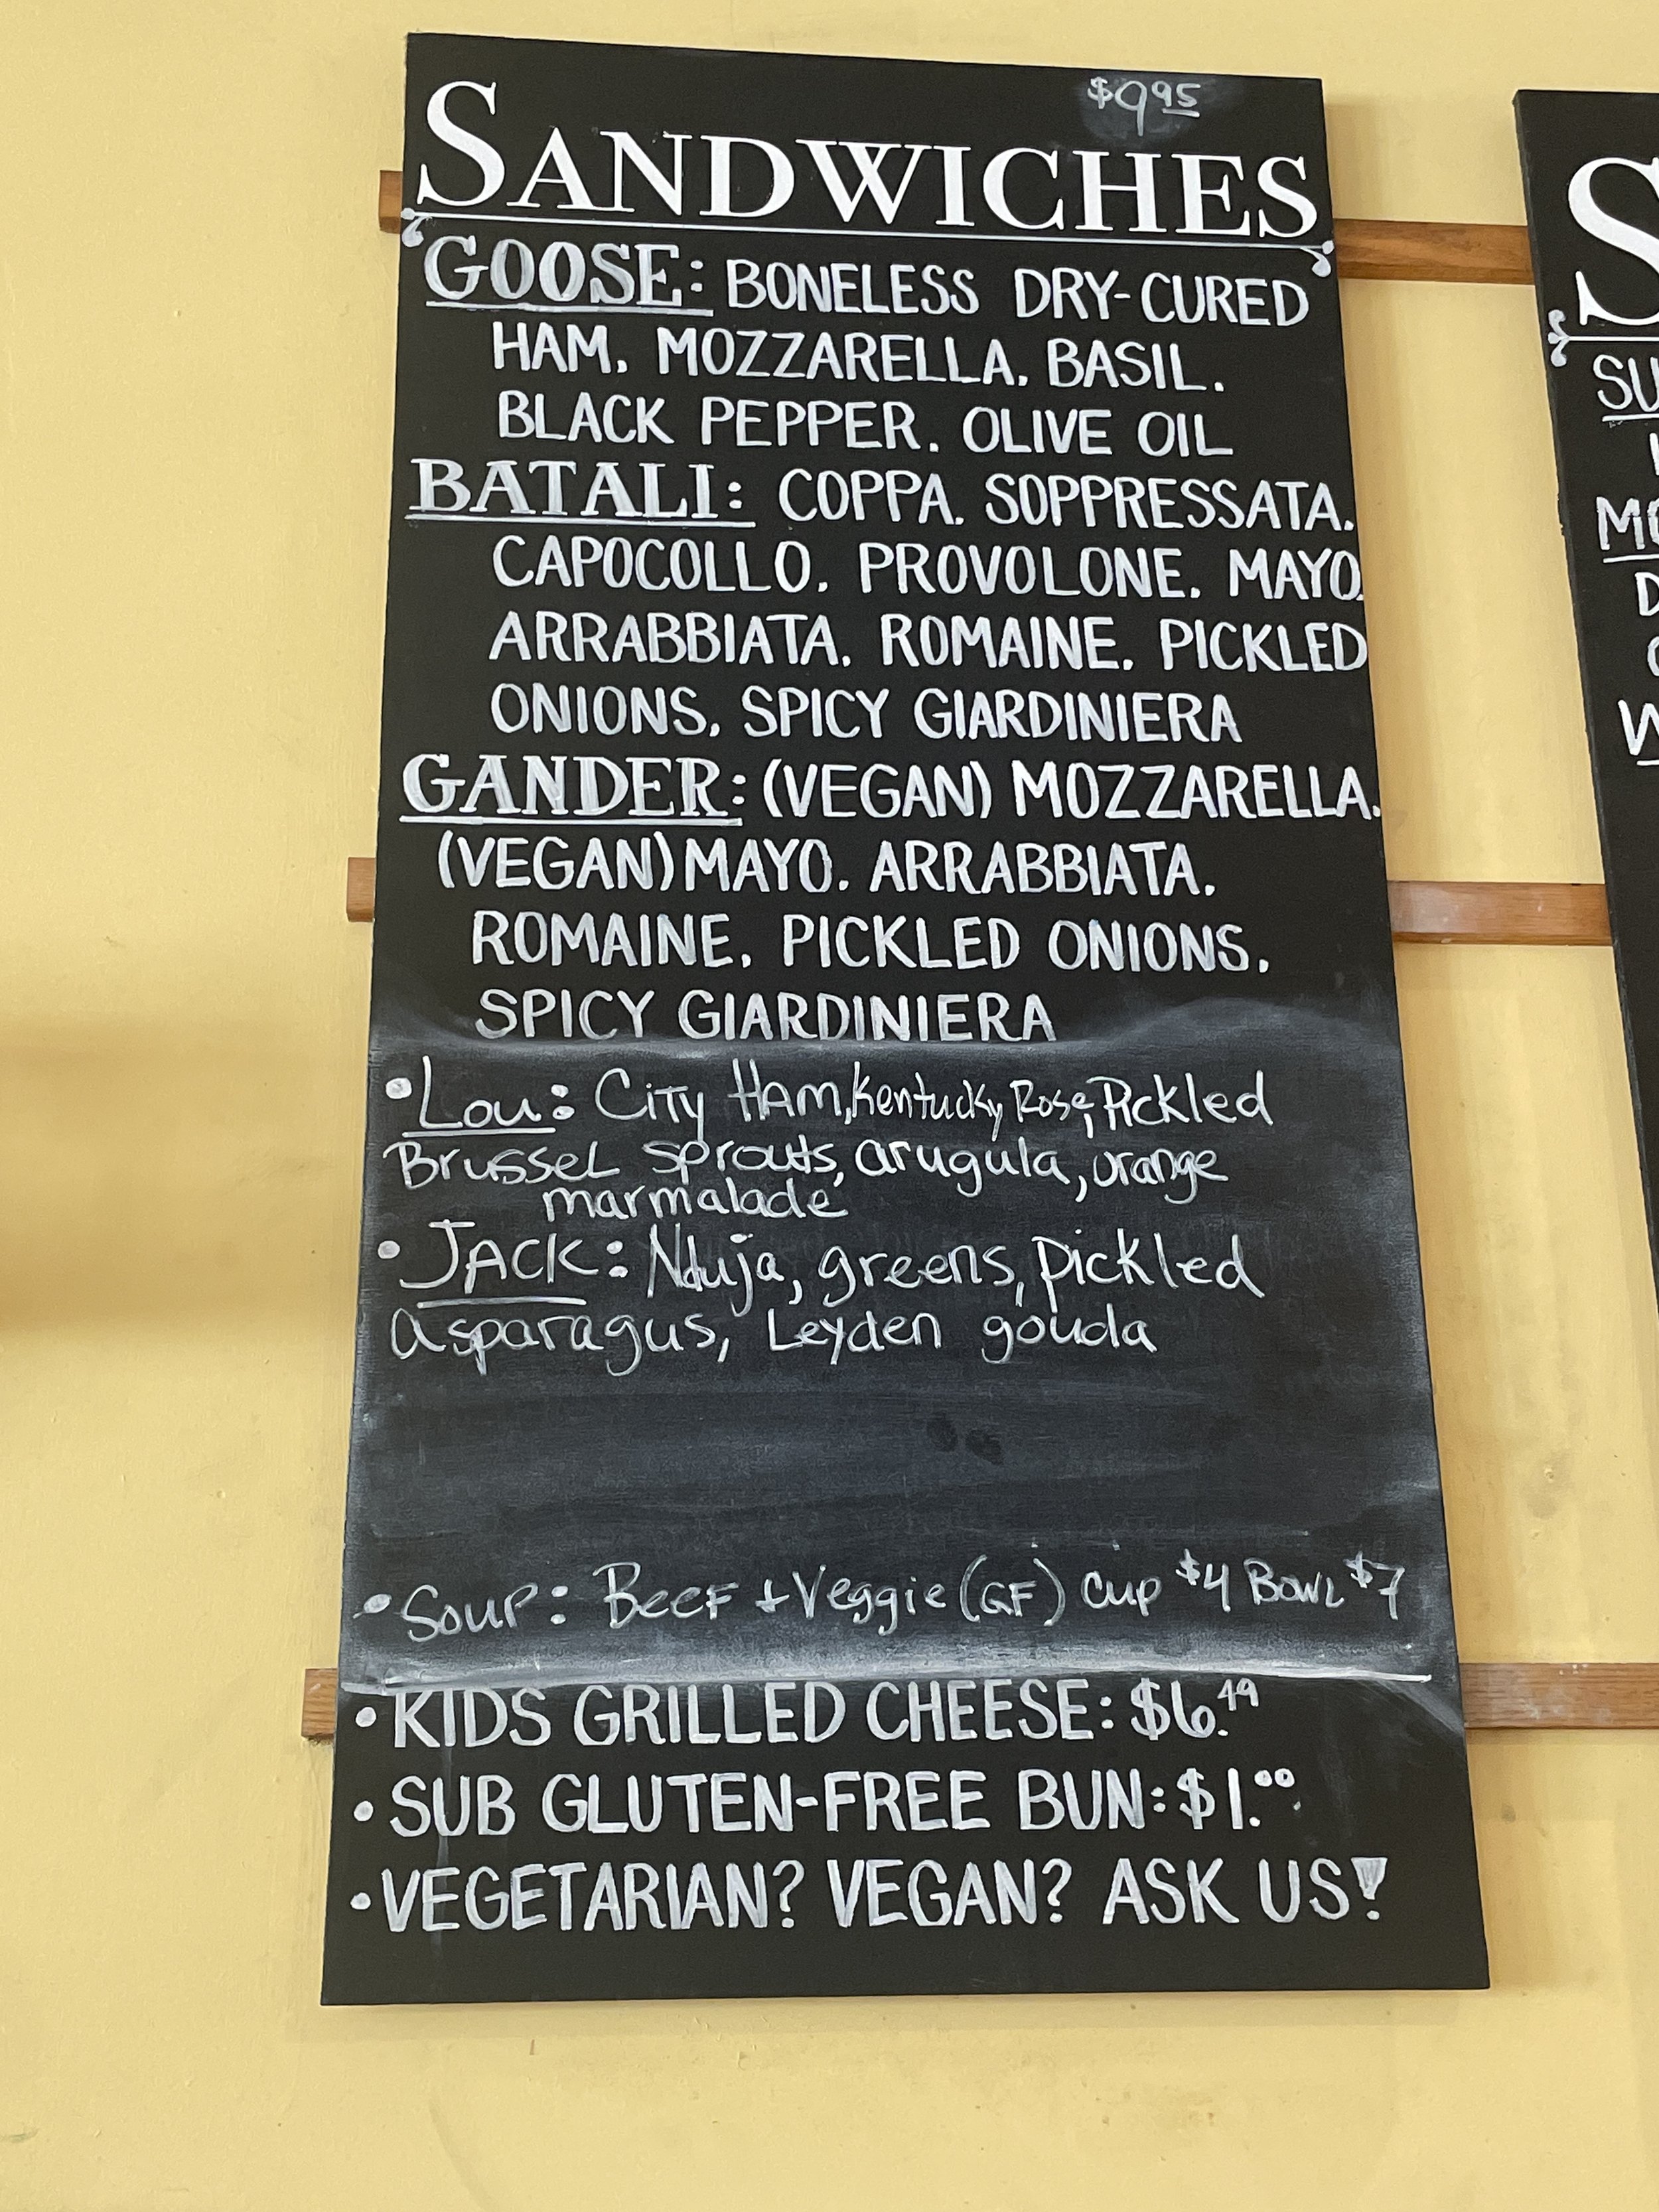 $9.95
SANDWICHES
GOOSE: BONELESS DRY-CURED
HAM, MOZZARELLA, BASIL,
BLACK PEPPER, OLIVE OIL
BATALI: COPPA, SOPPRESSATA,
CAPOCOLLO, PROVOLONE, MAYO,
ARRABBIATA, ROMAINE, PICKLED
ONIONS, SPICY GIARDINIERA
GANDER: (VEGAN) MOZZARELLA,
(VEGAN) MAYO, ARRABBIATA,
ROMAINE, PICKLED ONIONS,
SPICY GIARDINIERA
• Lou: City Ham, Kentucky Rose, Pickled
Brussel sprouts, arugula, orange
marmalade
• JACK: Nduja, greens, pickled
asparagus, Leyden gouda
• Soup: Beef + Veggie (GF) cup $4 Bowl $7
• KIDS GRILLED CHEESE: $6.49
• SUB GLUTEN-FREE BUN: $1.00
• VEGETARIAN? VEGAN? ASK US!
S
SU
MO
D
W